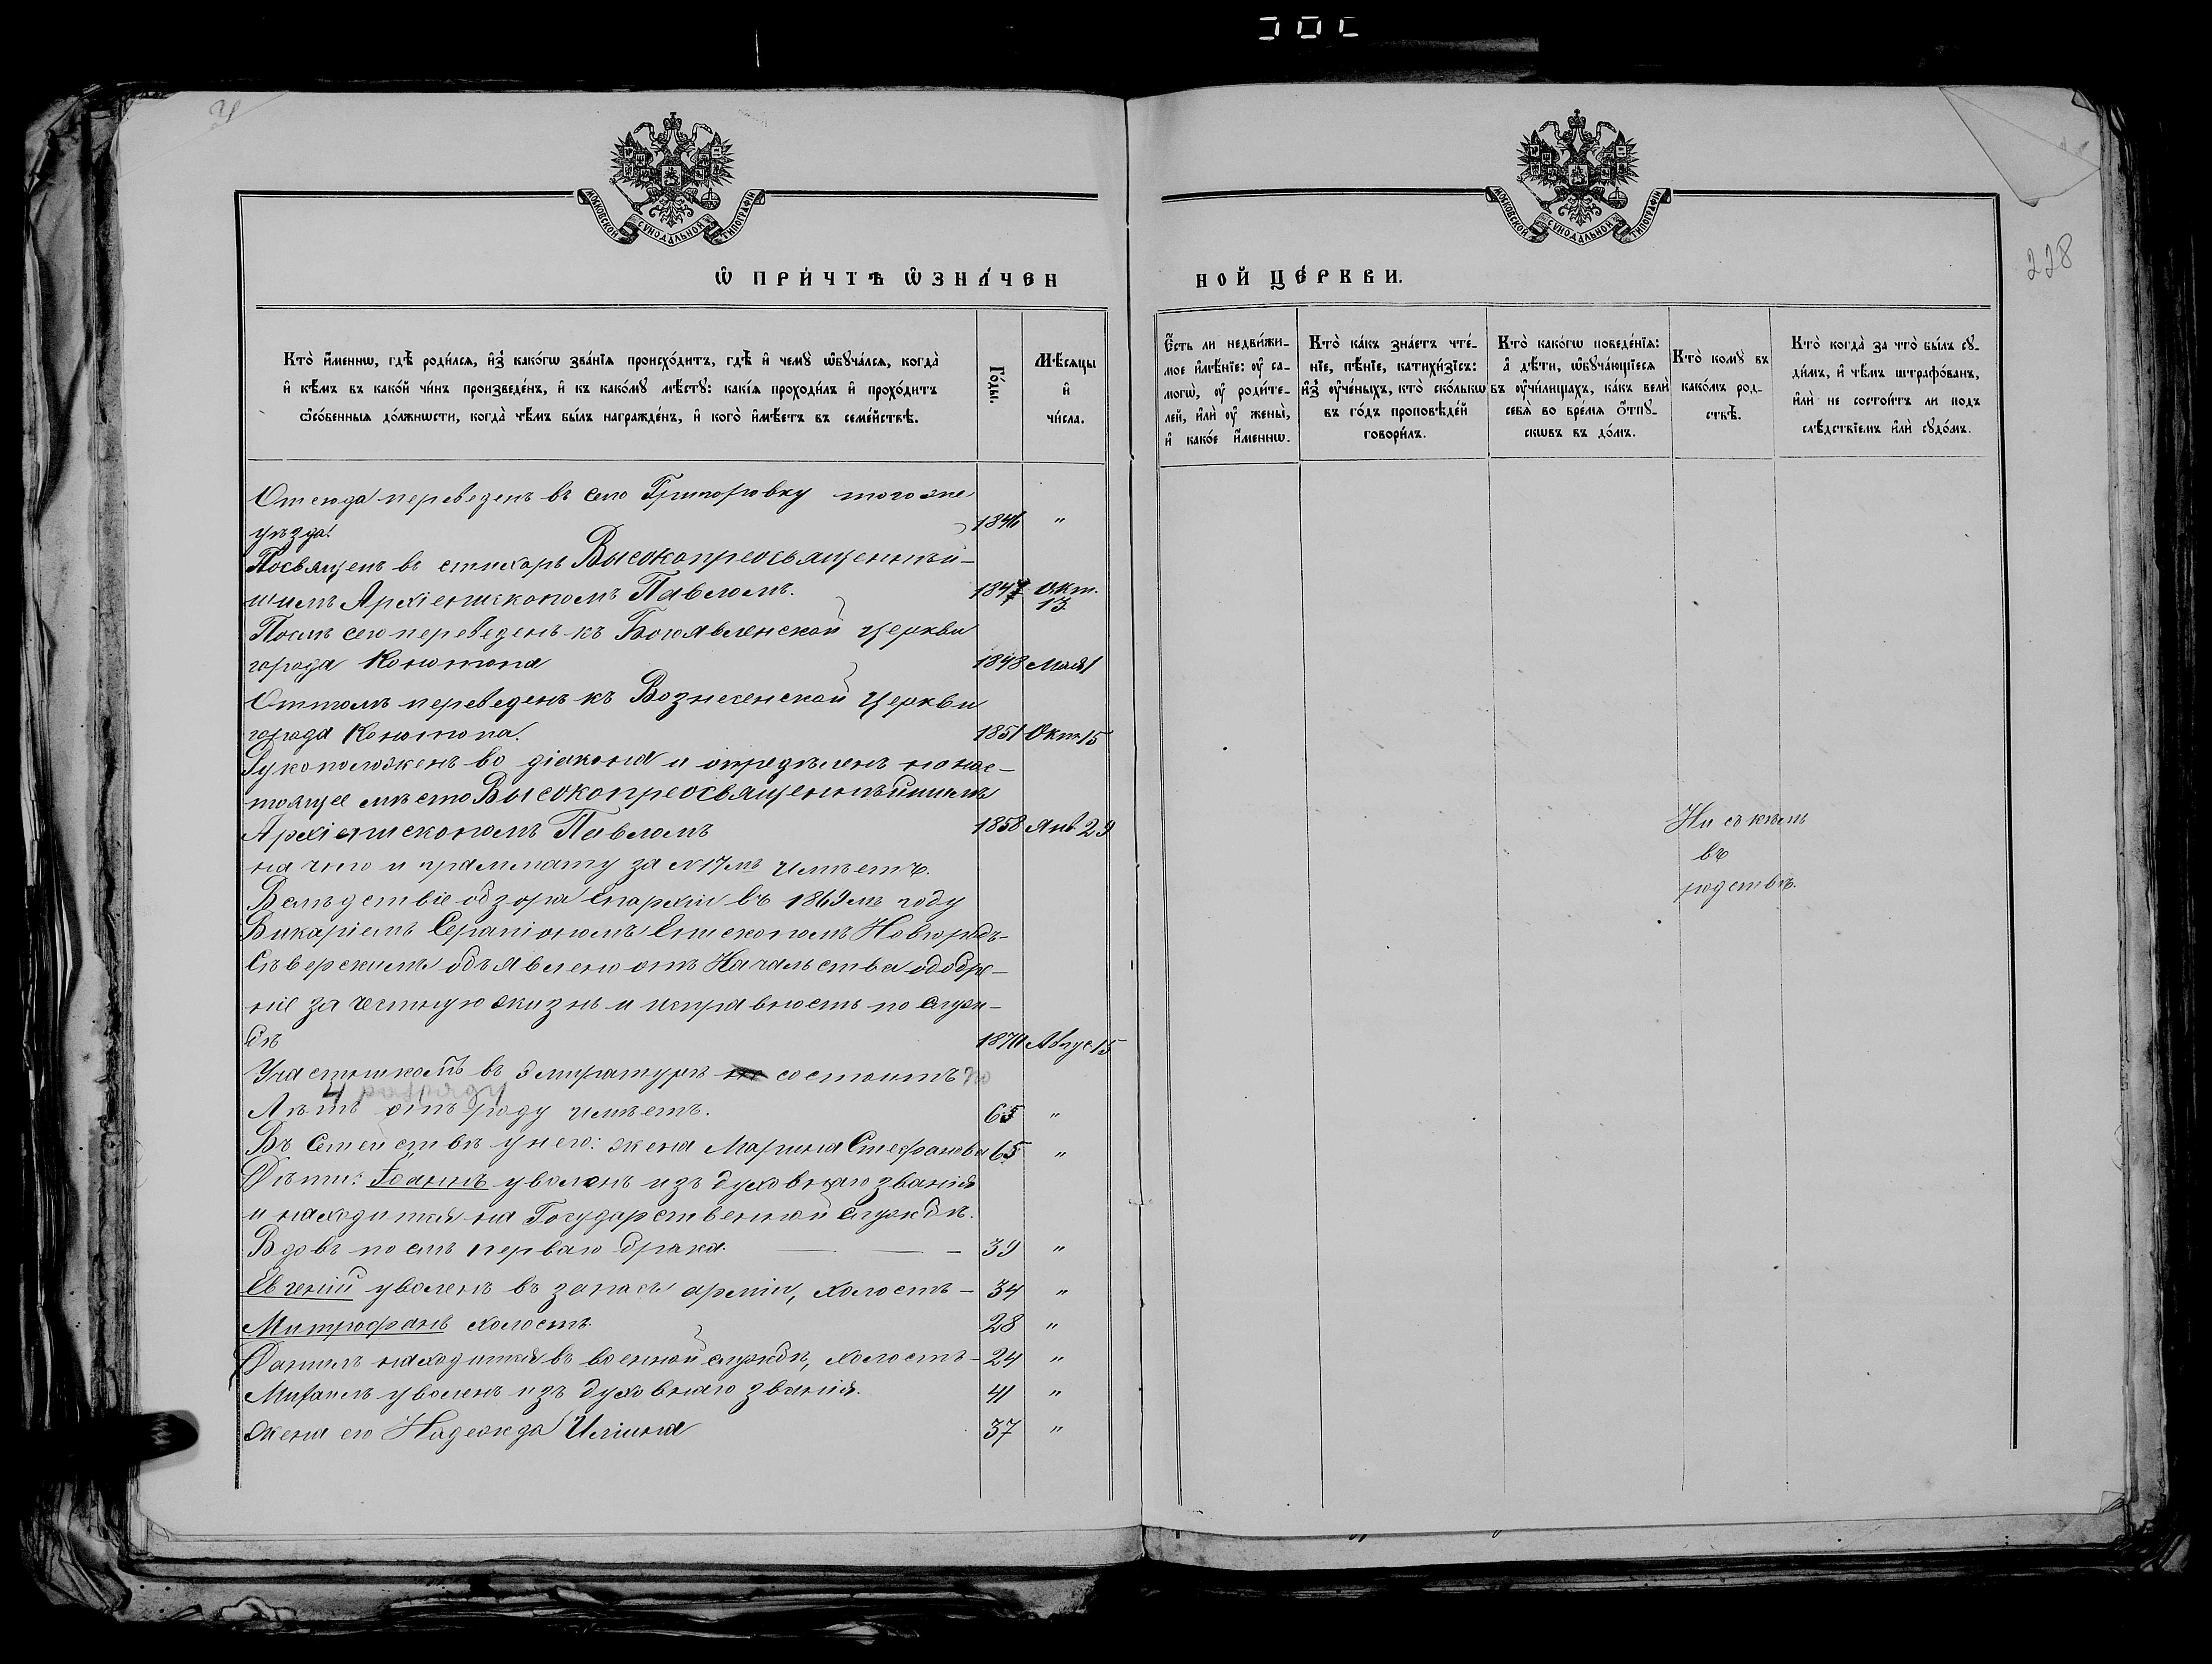 МОСКОВСКОЙ СѴНОДАЛЬНОЙ ТИПОГРАФІИ
Ѡ ПРИ́ЧТѢ Ѡ҆ЗНА́ЧЕН
Кто̀ и҆́менно, гдѣ̀ роди́лся, и҆з̾ како́гѡ зва́нїѧ происхо́дитъ, гдѣ̀ и҆ чемꙋ̀ ѡ҆бꙋча́лся, когда̀
и҆ кѣ́мъ въ како́й чи́нъ произведе́нъ, и҆ къ како́мꙋ мѣ́стꙋ: какі́ѧ проходи́лъ и҆ прохо́дитъ
ѻ҆со́бенныѧ до́лжнѡсти, когда̀ чѣ́мъ бы́лъ награжде́нъ, и҆ кого̀ и҆мѣ́етъ въ семе́йствѣ.
Го́ды.
Мѣ́сяцы
и҆
чи́сла.
Отсюда переведенъ въ село Григоровку того же
уѣзда. 1846 "
Посвященъ въ стихарь Высокопреосвященнѣй-
шимъ Архіепископомъ Павломъ. 1847 Окт. 13
Послѣ сего переведенъ къ Богоявленской Церкви
города Конотопа 1848 Мая 1
Оттолѣ переведенъ къ Вознесенской Церкви
города Конотопа. 1851 Окт. 15
Рукоположенъ во діакона и опредѣленъ на нас-
тоящее мѣсто Высокопреосвященнѣйшимъ
Архіепископомъ Павломъ 1858 Янв. 29
на что и граммату за №17мъ имѣетъ.
Вслѣдствіе обзора Епархіи въ 1869мъ году
Викаріемъ Серапіономъ Епископомъ Новгородъ-
Сѣверскимъ объявлено отъ Начальства одобре-
ніе за честную жизнь и исправность по служ-
бѣ 1870 Авгус. 15
Участникомъ въ эмиратурѣ состоитъ по
4 разряду
Лѣтъ отъ роду имѣетъ. 65 "
Въ Семействѣ у него: жена Марина Стефанова 65 "
Дѣти: Іоаннъ уволенъ изъ духовнаго званія
и находится на Государственной службѣ.
Вдовъ послѣ перваго брака. — — — 39 "
Евгеній уволенъ въ запасъ арміи, холостъ — 34 "
Митрофанъ холостъ. 28 "
Даніилъ находится въ военной службѣ, холостъ — 24 "
Михаилъ уволенъ изъ духовнаго званія. 41 "
Жена его Надежда Иліина 37 "
228
МОСКОВСКОЙ СѴНОДАЛЬНОЙ ТИПОГРАФІИ
НОЙ ЦЕ́РКВИ.
Є҆́сть ли недви́жи-
мое и҆мѣ́нїе: ᲂу҆ са-
могѡ̀, ᲂу҆ роди́те-
лей, и҆лѝ ᲂу҆ жены̀,
и҆ како́е и҆́менно.
Кто̀ ка́къ зна́етъ чте́-
нїе, пѣ́нїе, катихи́зїсъ:
и҆з̾ ᲂу҆че́ныхъ, кто̀ ско́лькѡ
въ го́дъ проповѣ́дей
говори́лъ.
Кто̀ како́гѡ поведе́нїѧ:
а҆ дѣ́ти, ѡ҆бꙋча́ющїеся
въ ᲂу҆чи́лищахъ, ка́къ велѝ
себѧ̀ во вре́мѧ ѿпꙋ-
скѡвъ въ до́мъ.
Кто̀ комꙋ̀ въ
како́мъ род-
ствѣ̀.
Кто̀ когда̀ за что̀ бы́лъ сꙋ-
ди́мъ, и҆ чѣ́мъ штрафо́ванъ,
и҆лѝ не состои́тъ ли подъ
слѣ́дствїемъ и҆лѝ сꙋдо́мъ.
Ни съ кѣмъ
въ
родствѣ.